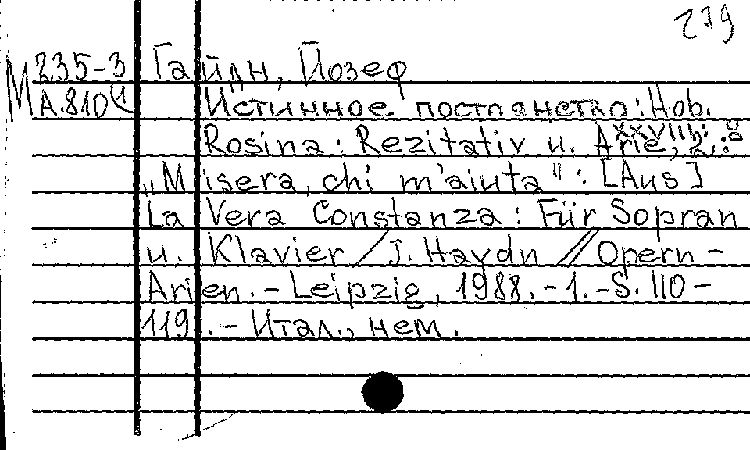 279
М 235-3 Гайдн, Йозеф
А.810(1 Истинное постоянство: Hob. XXVIII: 8
Rosina: Rezitativ u. Arie, 2.:
„Misera, chi m'aiuta": [Aus]
La Vera Constanza: Für Sopran
u. Klavier / J. Haydn // Opern-
Arien. - Leipzig, 1988. - 1. - S. 110-
119. - Итал., нем.